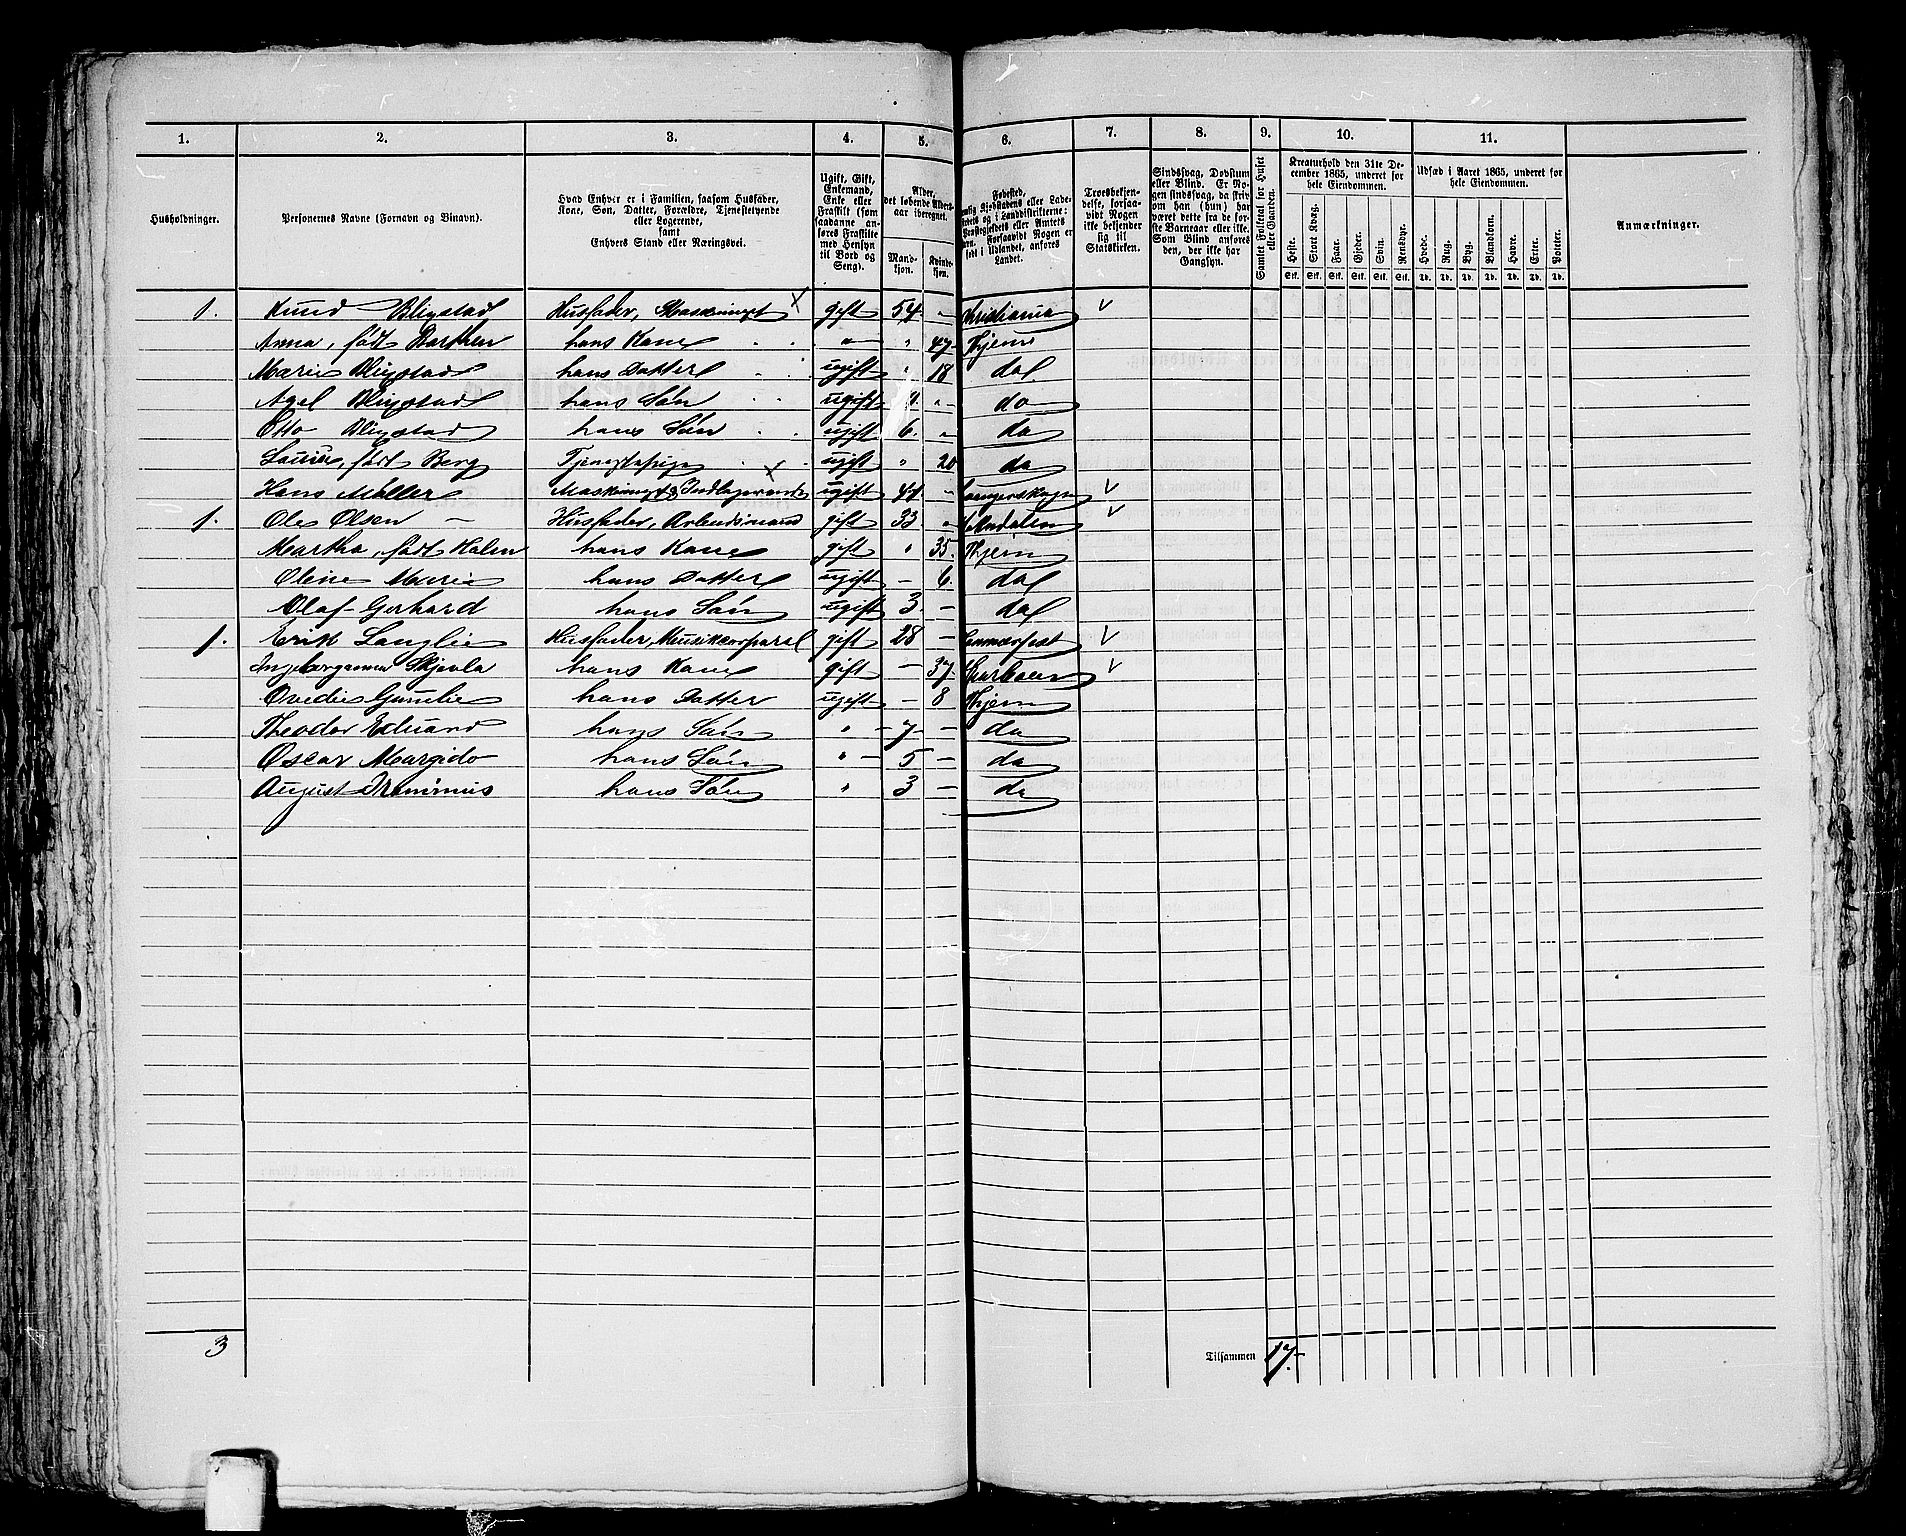 1. 2. 3. 4. 5. 6. 7. 8. 9. 10. 11.
Husholdninger.
Personernes Navne (Fornavn og Binavn).
Hvad Enhver er i Familien, saasom Husfader,
Kone, Søn, Datter, Forældre, Tjenestetyende
eller Logerende,
samt
Enhvers Stand eller Næringsvei.
Ugift, Gift,
Enkemand,
Enke eller
Fraskilt (som
saadanne an-
føres Fraskilte
med Hensyn
til Bord og
Seng).
Alder,
det løbende Alders-
aar iberegnet.
Mand-
kjøn.
Kvinde-
kjøn.
Fødested,
Forsaavidt Nogen er
født i Udlandet, anføres
Landet.
Troesbekjen-
delse, forsaa-
vidt Nogen
ikke bekjender
sig til
Statskirken.
Sindssvag, Døvstum
eller Blind. Er No-
gen sindssvag, da skriv
om han (hun) har
været dette fra de før-
ste Barneaar eller ikke.
Som Blind anføres
den, der ikke har
Gangsyn.
Samlet Folketal for Huset
eller Gaarden.
Kreaturhold den 31te De-
cember 1865, underet for
hele Eiendommen.
Heste. Stort Kvæg. Faar. Gjeder. Svin. Rensdyr.
Stk. Stk. Stk. Stk. Stk. Stk.
Udsæd i Aaret 1865, underet for
hele Eiendommen.
Hvede. Rug. Byg. Blandkorn. Havre. Erter. Poteter.
Td. Td. Td. Td. Td. Td. Td.
Anmærkninger.
1. Knud Bligstad Husfader, Maskinmst gift 54 - Christiania
Anna, født Barthen hans Kone " " 47 Thjem
Marie Bligstad hans Datter ugift " 18 do
Axel Bligstad hans Søn ugift " do
Otto Bligstad hans Søn ugift 6. " do
født Berg Tjenestepige ugift " 20 do
Hans Møller ugift 44 -
1. Ole Olsen - Husfader, Arbeidsmand gift 33 "
Martha, født Holm hans Kone gift " 35. Thjem
Oline Marie hans Datter ugift - 6. do
Olaf Gerhard hans Søn ugift 3 - do
1. Erik Langlie Husfader, Musikcorporal gift 28 - Hammerfest
hans Kone gift - 37
hans Datter ugift - 8 Thjem
Theodor Eduard hans Søn " 7 - do
Oscar Margido hans Søn " 5 - do
August hans Søn " 3 - do
3 Tilsammen 17.